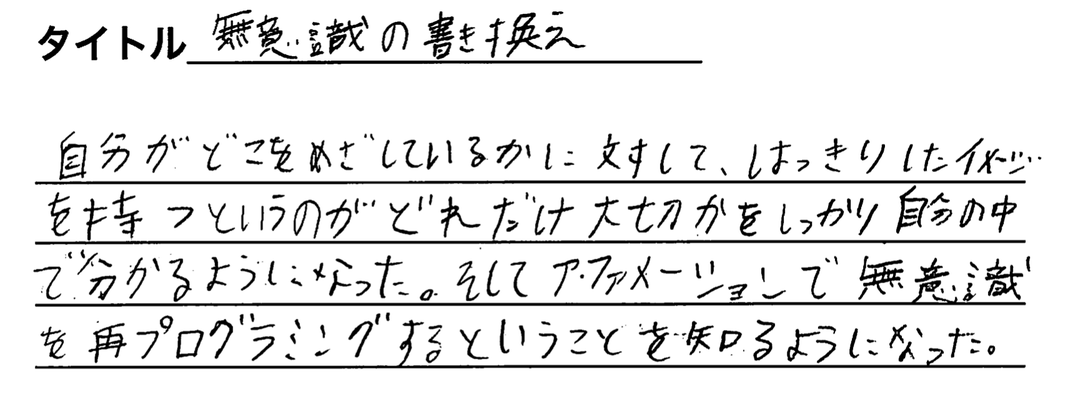 タイトル 無意識の書き換え
自分がどこをめざしているかに対して、はっきりしたイメージ
を持つというのがどれだけ大切かをしっかり自分の中
で分かるようになった。そしてアファメーションで無意識
を再プログラミングするということを知るようになった。